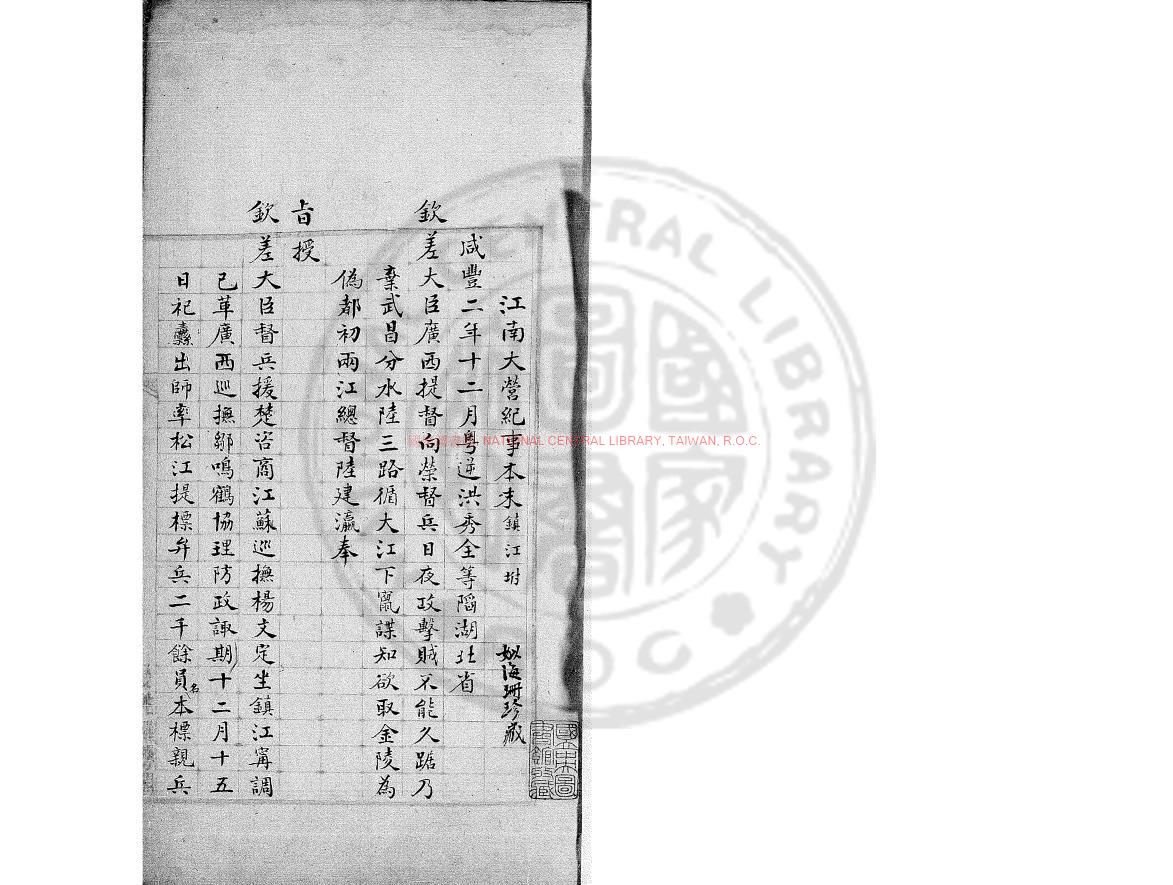 江南大營紀事本末 鎮江坿
如海珊珍藏
咸豐二年十二月粵逆洪秀全等陷湖北省
欽差大臣廣西提督向榮督兵日夜攻擊賊不能久踞乃
棄武昌分水陸三路循大江下竄諜知欲取金陵為
偽都初兩江總督陸建瀛奉
旨授
欽差大臣督兵援楚咨商江蘇巡撫楊文定坐鎮江甯調
已革廣西巡撫鄒鳴鶴協理防政諏期十二月十五
日祀纛出師率松江提標弁兵二千餘員名本標親兵
國家圖書館 NATIONAL CENTRAL LIBRARY, TAIWAN, R.O.C.
NATIONAL CENTRAL LIBRARY
R.O.C.
國立中央圖書館收藏